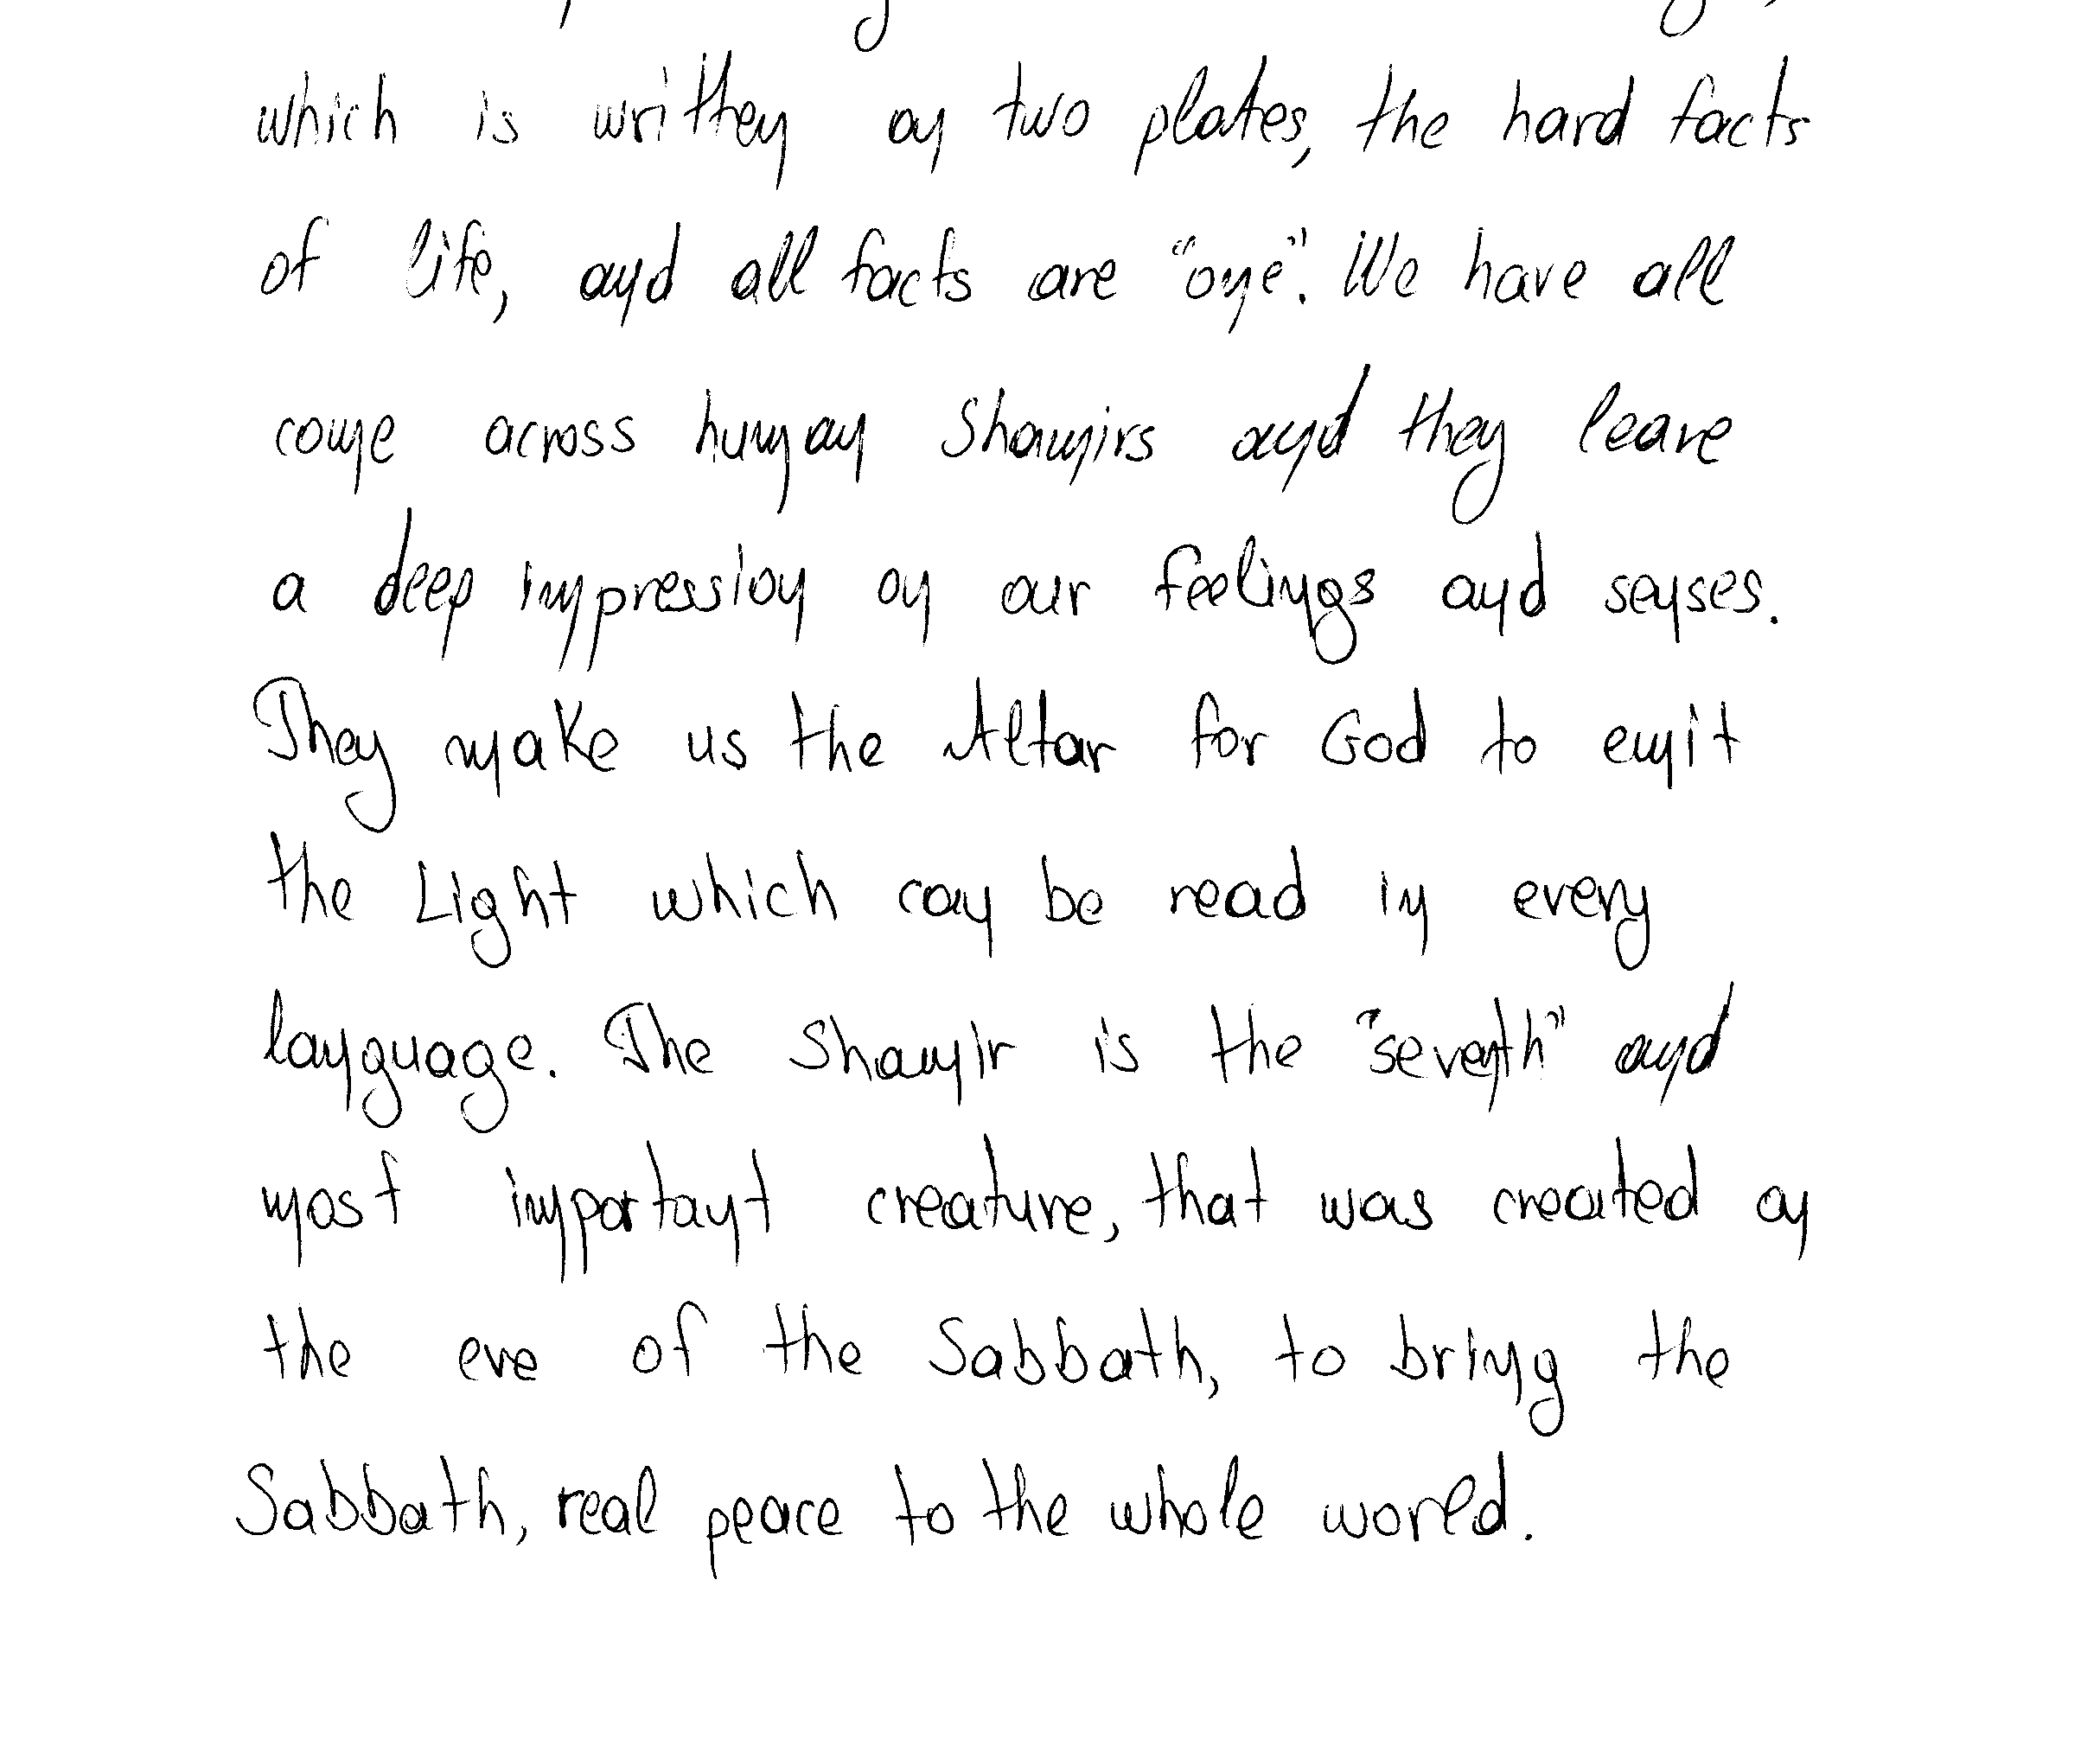 which is written on two plates, the hard facts
of life, and all facts are "one". We have all
come across human Shamirs and they leave
a deep impression on our feelings and senses.
They make us the Altar for God to emit
the Light which can be read in every
language. The Shamir is the "seventh" and
most important creature, that was created on
the eve of the Sabbath, to bring the
Sabbath, real peace to the whole world.